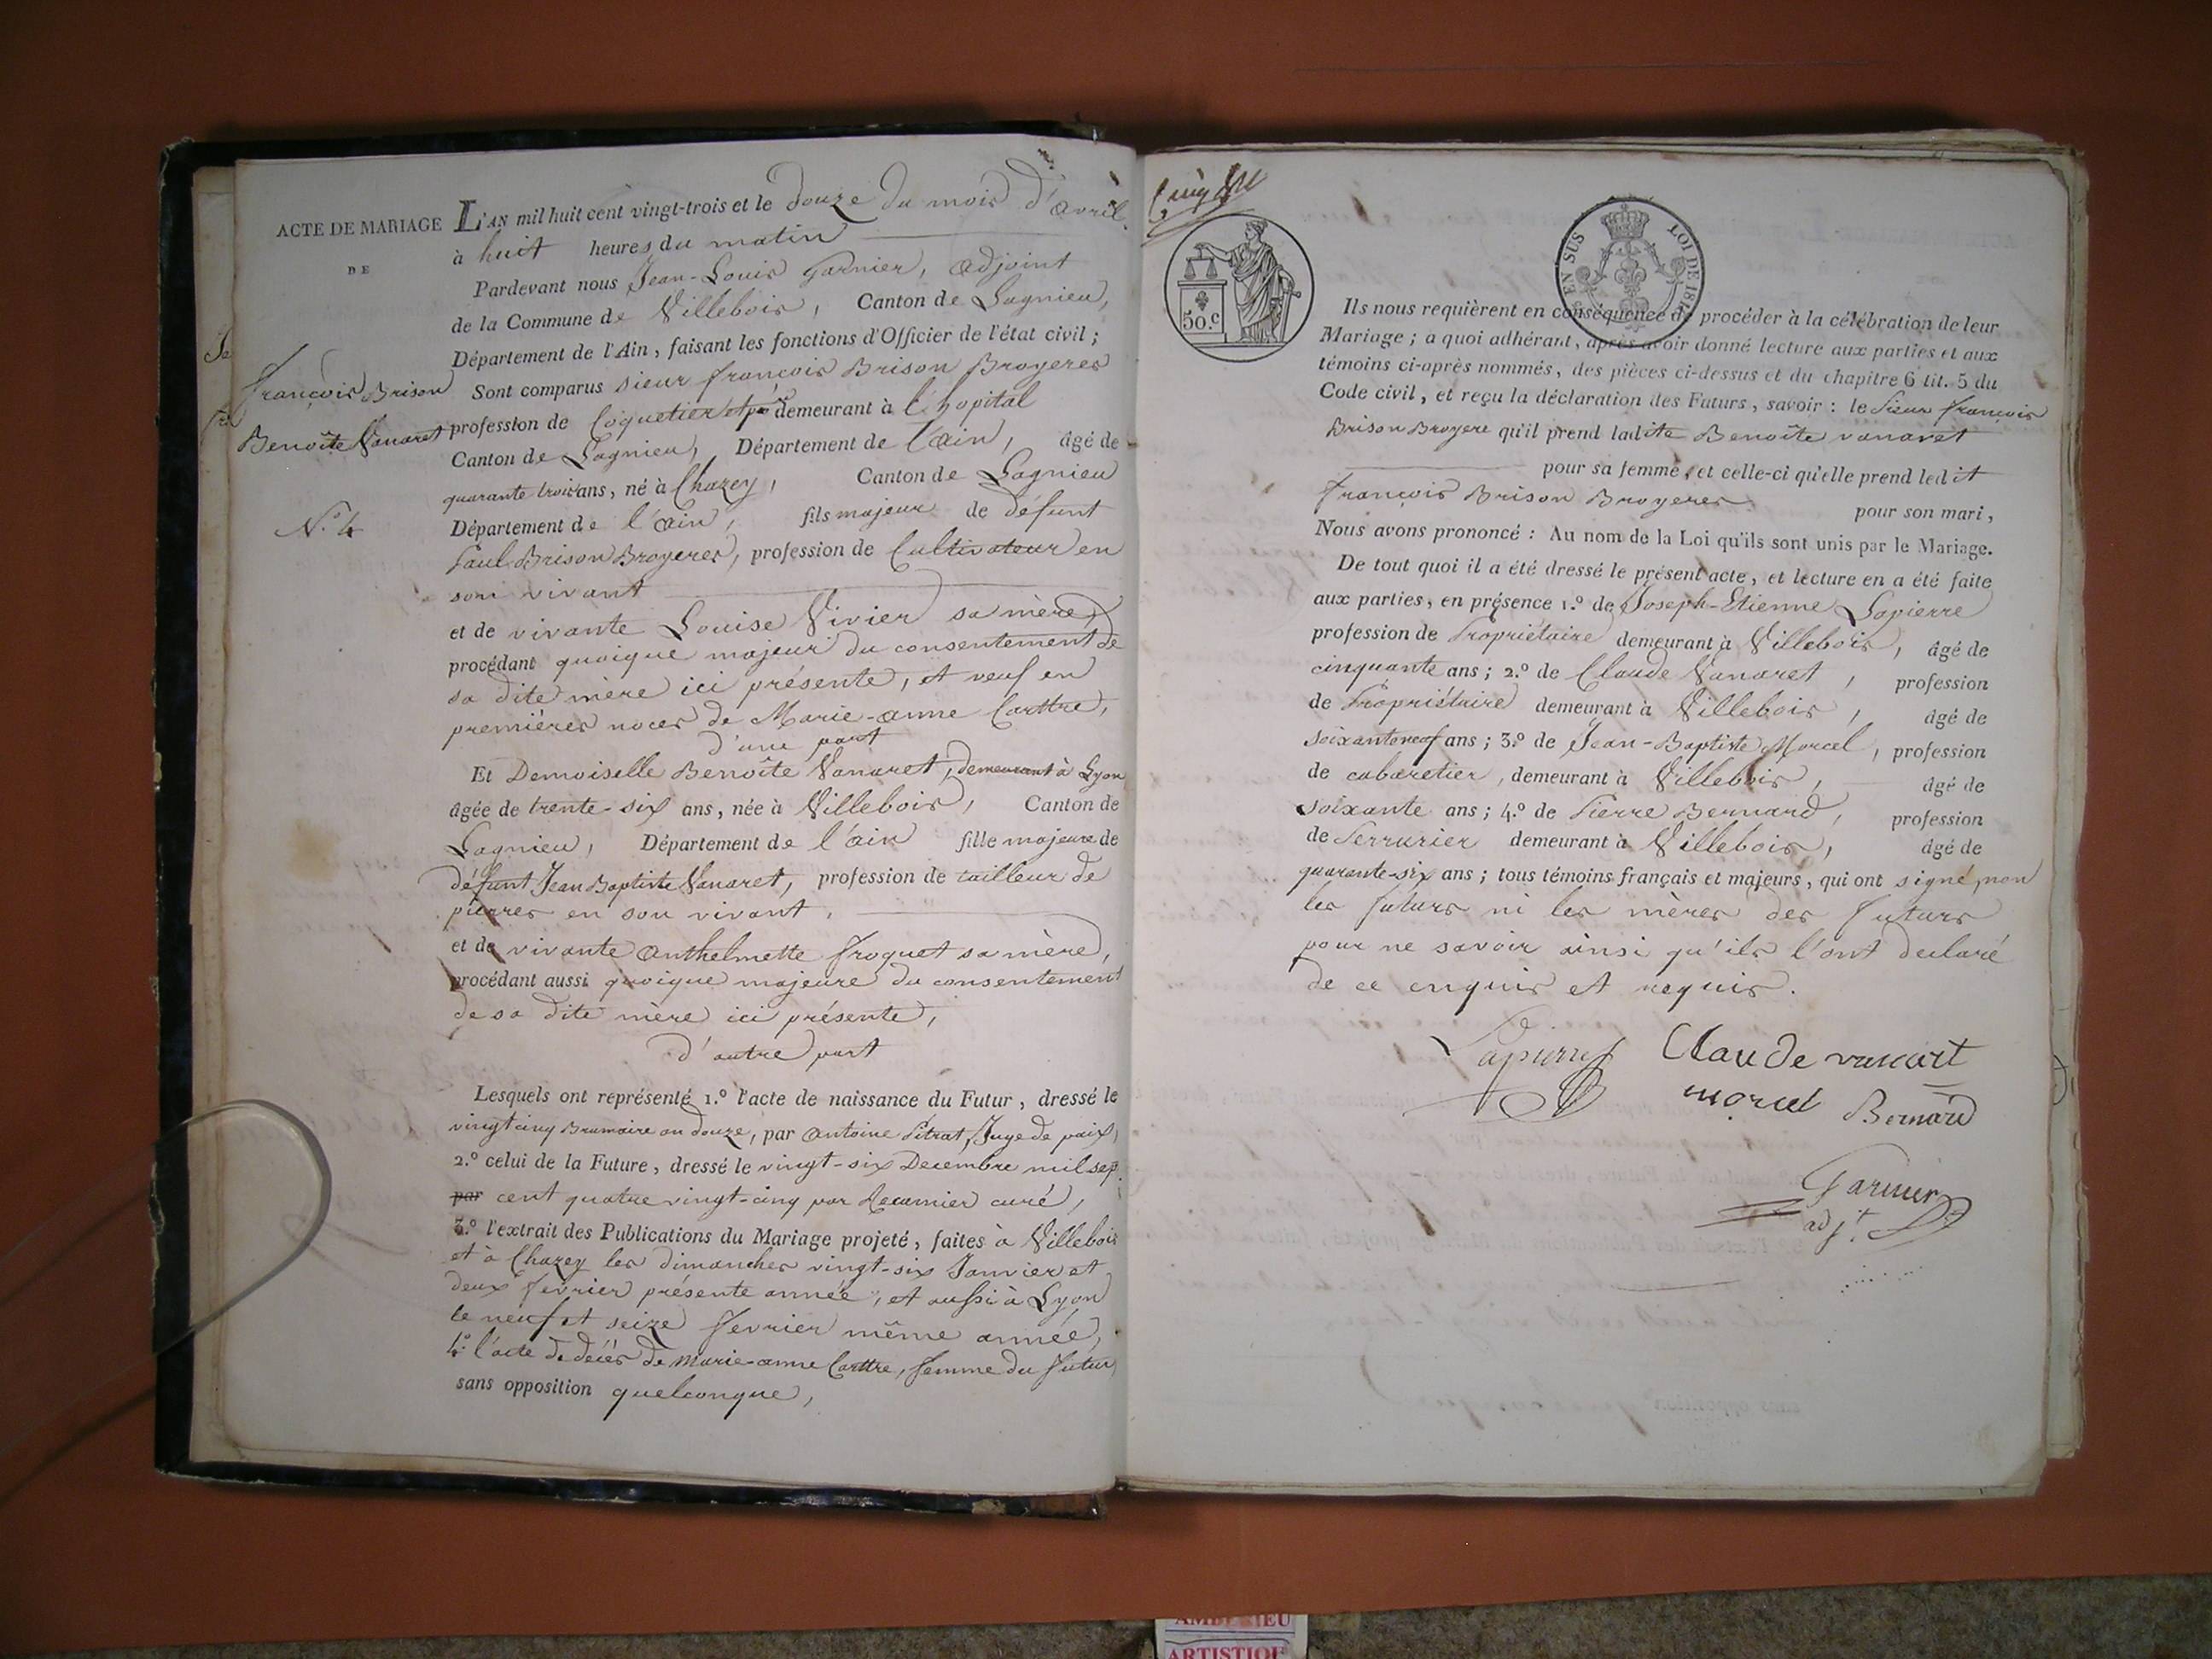 ACTE DE MARIAGE
DE
François Brison
Benoîte Vanaret
N.º 4
L'AN mil huit cent vingt-trois et le douze du mois d'avril
à huit heures du matin
Pardevant nous Jean-Louis Garnier, adjoint
de la Commune de Villebois, Canton de Lagnieu,
Département de l'Ain, faisant les fonctions d'Officier de l'état civil;
Sont comparus sieur françois Brison Broyeres
profession de Coquetier demeurant à l'hopital
Canton de Lagnieu, Département de l'ain, âgé de
quarante trois ans, né à Chazey, Canton de Lagnieu
Département de l'ain, fils majeur de défunt
Paul Brison Broyeres, profession de Cultivateur en
son vivant
et de vivante Louise Vivier sa mère,
procédant quoique majeur du consentement de
sa dite mère ici présente, et veuf en
premières noces de Marie-anne Carttre,
d'une part
Et Demoiselle Benoîte Vanaret, demeurant à Lyon
âgée de trente-six ans, née à Villebois, Canton de
Lagnieu, Département de l'ain fille majeure de
défunt Jean Baptiste Vanaret, profession de tailleur de
pierres en son vivant,
et de vivante anthelmette froquet sa mère,
procédant aussi quoique majeure du consentement
de sa dite mère ici présente,
d'autre part
Lesquels ont représenté 1.º l'acte de naissance du Futur, dressé le
vingt cinq Brumaire an douze, par Antoine Sitrat, Juge de paix,
2.º celui de la Future, dressé le vingt-six Decembre mil sept
par cent quatre vingt-cinq par Recamier curé,
3.º l'extrait des Publications du Mariage projeté, faites à Villebois
et à Chazey les dimanches vingt-six Janvier et
deux fevrier présente année, et aussi à Lyon
le neuf et seize fevrier même année,
4º l'acte de décès de Marie-anne Carttre, femme du futur,
sans opposition quelconque,
50.c
EN SUS
LOI DE 1816
Ils nous requièrent en conséquence de procéder à la célébration de leur
Mariage; a quoi adhérant, après avoir donné lecture aux parties et aux
témoins ci-après nommés, des pièces ci-dessus et du chapitre 6 tit. 5 du
Code civil, et reçu la déclaration des Futurs, savoir: le Sieur françois
Brison Broyere qu'il prend ladite Benoîte vanaret
pour sa femme, et celle-ci qu'elle prend ledit
françois Brison Broyeres pour son mari,
Nous avons prononcé: Au nom de la Loi qu'ils sont unis par le Mariage.
De tout quoi il a été dressé le présent acte, et lecture en a été faite
aux parties, en présence 1.º de Joseph-Etienne Lapierre
profession de Propriétaire demeurant à Villebois, âgé de
cinquante ans; 2.º de Claude Vanaret, profession
de Propriétaire demeurant à Villebois, âgé de
soixanteneuf ans; 3.º de Jean-Baptiste Morcel, profession
de cabaretier, demeurant à Villebois, âgé de
soixante ans; 4.º de Pierre Bernard, profession
de Serrurier demeurant à Villebois, âgé de
quarante-six ans; tous témoins français et majeurs, qui ont signé, non
les futurs ni les mères des futurs
pour ne savoir ainsi qu'ils l'ont declaré
de ce enquis et requis.
Lapierre Claude vanaret
morcel Bernard
Garnier
adj.t
ARTISTIQUE